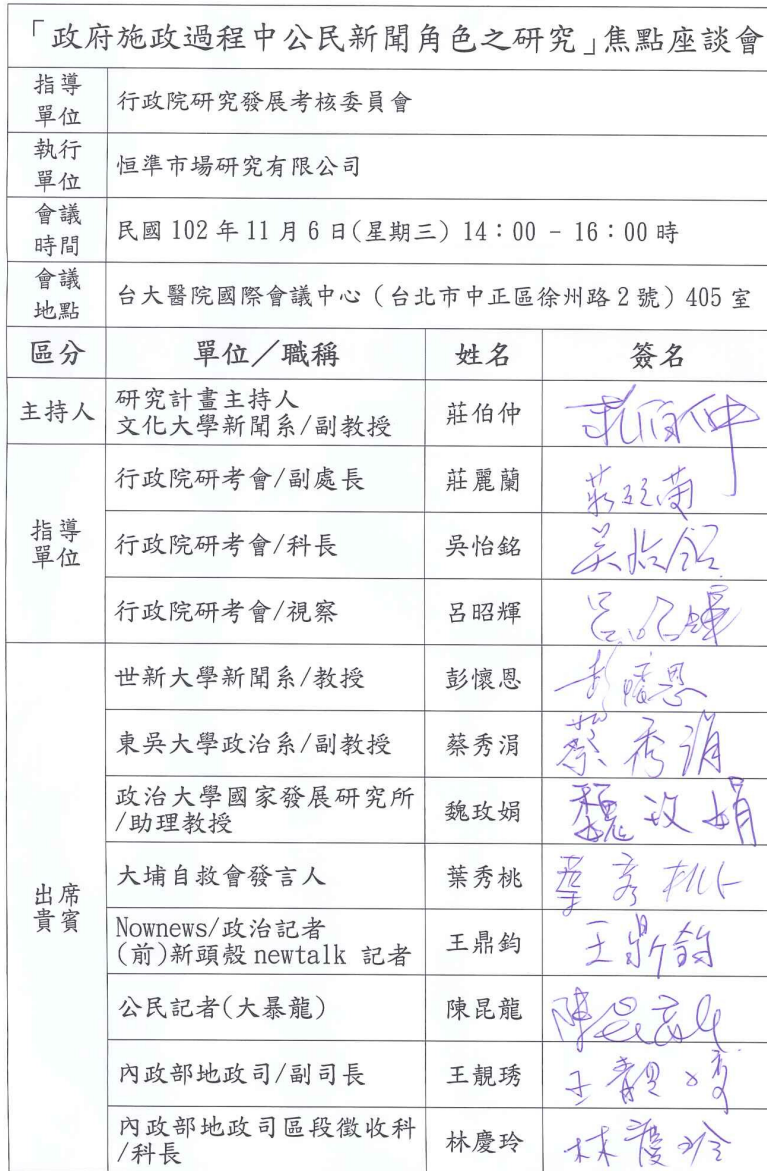 「政府施政過程中公民新聞角色之研究」焦點座談會
指導
單位
行政院研究發展考核委員會
執行
單位
恒準市場研究有限公司
會議
時間
民國 102 年 11 月 6 日(星期三) 14：00 - 16：00 時
會議
地點
台大醫院國際會議中心（台北市中正區徐州路 2 號）405 室
區分 單位／職稱 姓名 簽名
主持人
研究計畫主持人
文化大學新聞系/副教授
莊伯仲 莊伯仲
指導
單位
行政院研考會/副處長 莊麗蘭 莊麗蘭
行政院研考會/科長 吳怡銘 吳怡銘
行政院研考會/視察 呂昭輝 呂昭輝
出席
貴賓
世新大學新聞系/教授 彭懷恩 彭懷恩
東吳大學政治系/副教授 蔡秀涓 蔡秀涓
政治大學國家發展研究所
/助理教授
魏玫娟 魏玫娟
大埔自救會發言人 葉秀桃 葉秀桃
Nownews/政治記者
(前)新頭殼 newtalk 記者
王鼎鈞 王鼎鈞
公民記者(大暴龍) 陳昆龍 陳昆龍
內政部地政司/副司長 王靚琇 王靚琇
內政部地政司區段徵收科
/科長
林慶玲 林慶玲